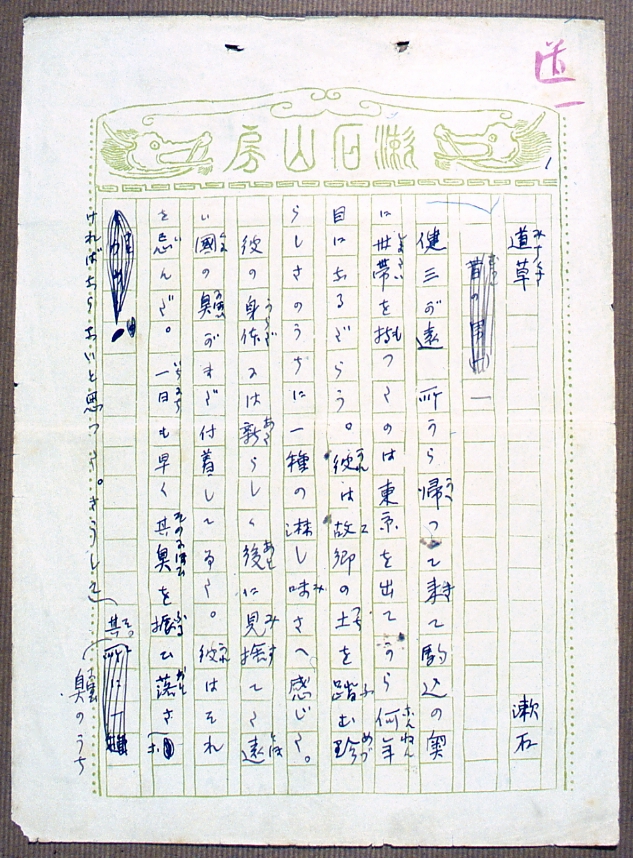 漱石山房
1
道草 漱石
一
健三が遠所から帰つて来て駒込の奥
に世帯を持つたのは東京を出てから何年
目になるだらう。彼は故郷の土を踏む珍
らしさのうちに一種の淋し味さへ感じた。
彼の身体には新らしく後に見捨てた遠
い國の臭がまだ付着してゐた。彼はそれ
を忌んだ。一日も早く其臭を振ひ落さ
ければならないと思つた。さうして其
臭のうち